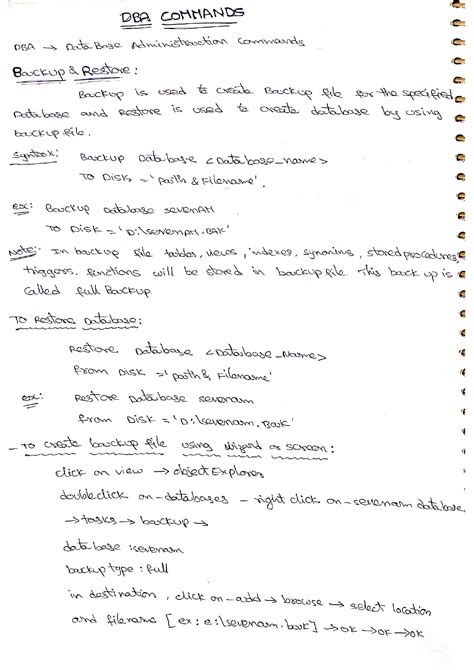 DBA COMMANDS
DBA → DataBase Administration commands
Backup & Restore :
Backup is used to create Backup file for the specified
Database and Restore is used to create database by using
backup file.
Syntax: Backup Database <Database_name>
TO Disk = 'path & Filename'.
ex: Backup Database sevenAM
TO Disk = 'D:\sevenAM.BAK'
Note:- In backup file tables, views, indexes, synonims, stored procedures,
triggers, functions will be stored in backup file This back up is
called full Backup
TO Restore Database:
Restore Database <Database_Name>
From Disk = 'path & Filename'
ex: Restore Database sevenam
from Disk = 'D:\sevenam.Bak'
- TO create backup file using wizard or screen:
click on view → object Explorer
doubleclick on-databases - right click on-sevenam database
→ tasks → backup →
database : sevenam
backup type : full
in destination, click on-add → browse → select location
and filename [ex: e:\sevenam.bak] → ok → ok → ok